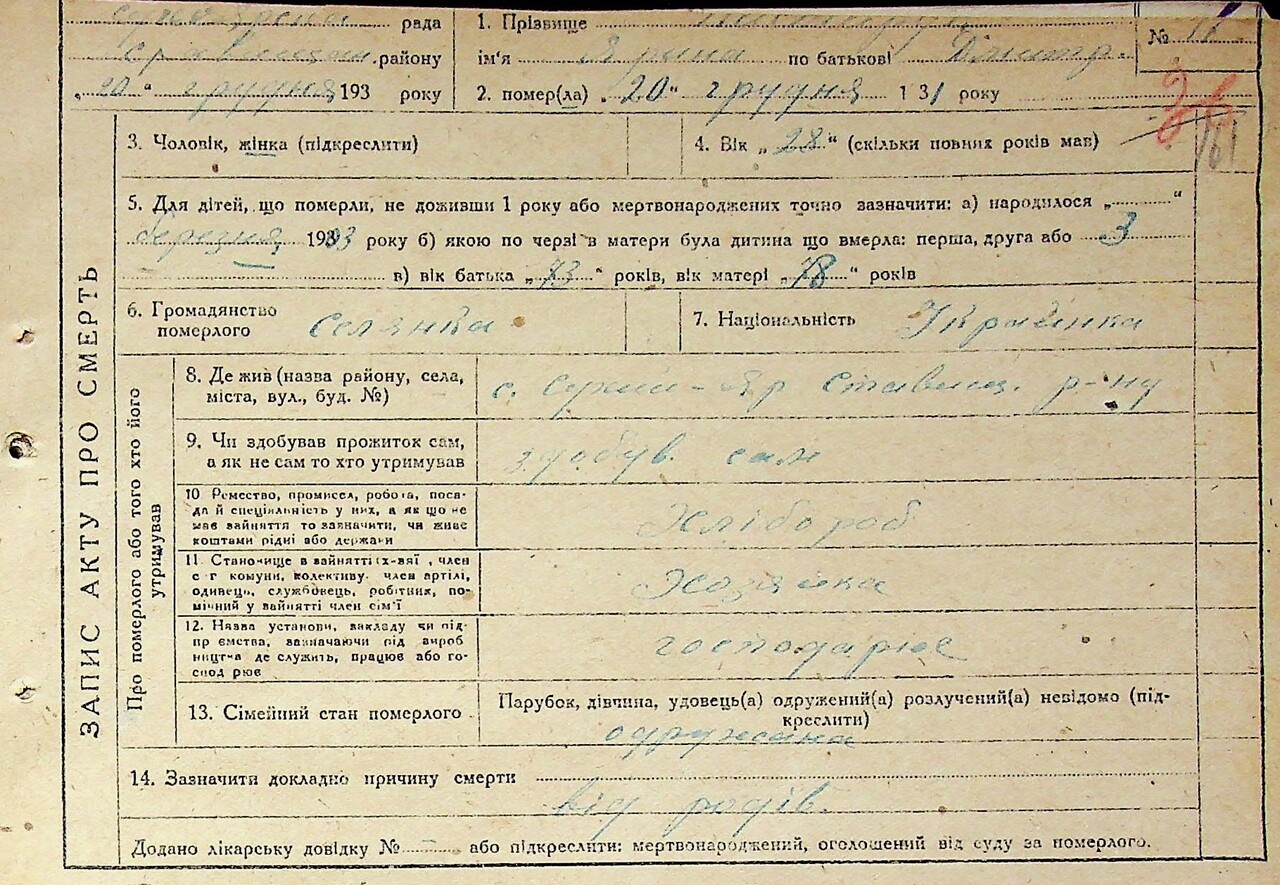 рада
району
„20“ грудня 193 року
1. Прізвище
ім'я Ярина по батькові Дмитр.
2. помер(ла) „20“ грудня 131 року
№
ЗАПИС АКТУ ПРО СМЕРТЬ
3. Чоловік, жінка (підкреслити)
4. Вік „28“ (скільки повних років мав)
5. Для дітей, що померли, не доживши 1 року або мертвонароджених точно зазначити: а) народилося „ “
березня 193 року б) якою по черзі в матери була дитина що вмерла: перша, друга або 3
в) вік батька „73“ років, вік матері „78“ років
6. Громадянство
померлого селянка
7. Національність Українка
Про померлого або того хто його
утримував
8. Де жив (назва району, села,
міста, вул., буд. №)
с. Яр Ставищ. р-ну
9. Чи здобував прожиток сам,
а як не сам то хто утримував
здобув. сам
10 Ремество, промисел, робота, поса-
да й спеціальність у них, а як що не
має зайняття то зазначити, чи живе
коштами рідні або держави
Хлібороб
11. Становище в зайнятті член
с г комуни, колективу. член артілі,
одивець, службовець, робітник, по-
мічний у зайнятті член сім'ї
Хозяйка
12. Назва установи, закладу чи під-
пр ємства, зазначаючи під вироб
ництва де служить, працює або го-
спод рює
господарює
13. Сімейний стан померлого
Парубок, дівчина, удовець(а) одружений(а) розлучений(а) невідомо (під-
креслити)
одружена
14. Зазначити докладно причину смерти
від родів.
Додано лікарську довідку № або підкреслити: мертвонароджений, оголошений від суду за померлого.